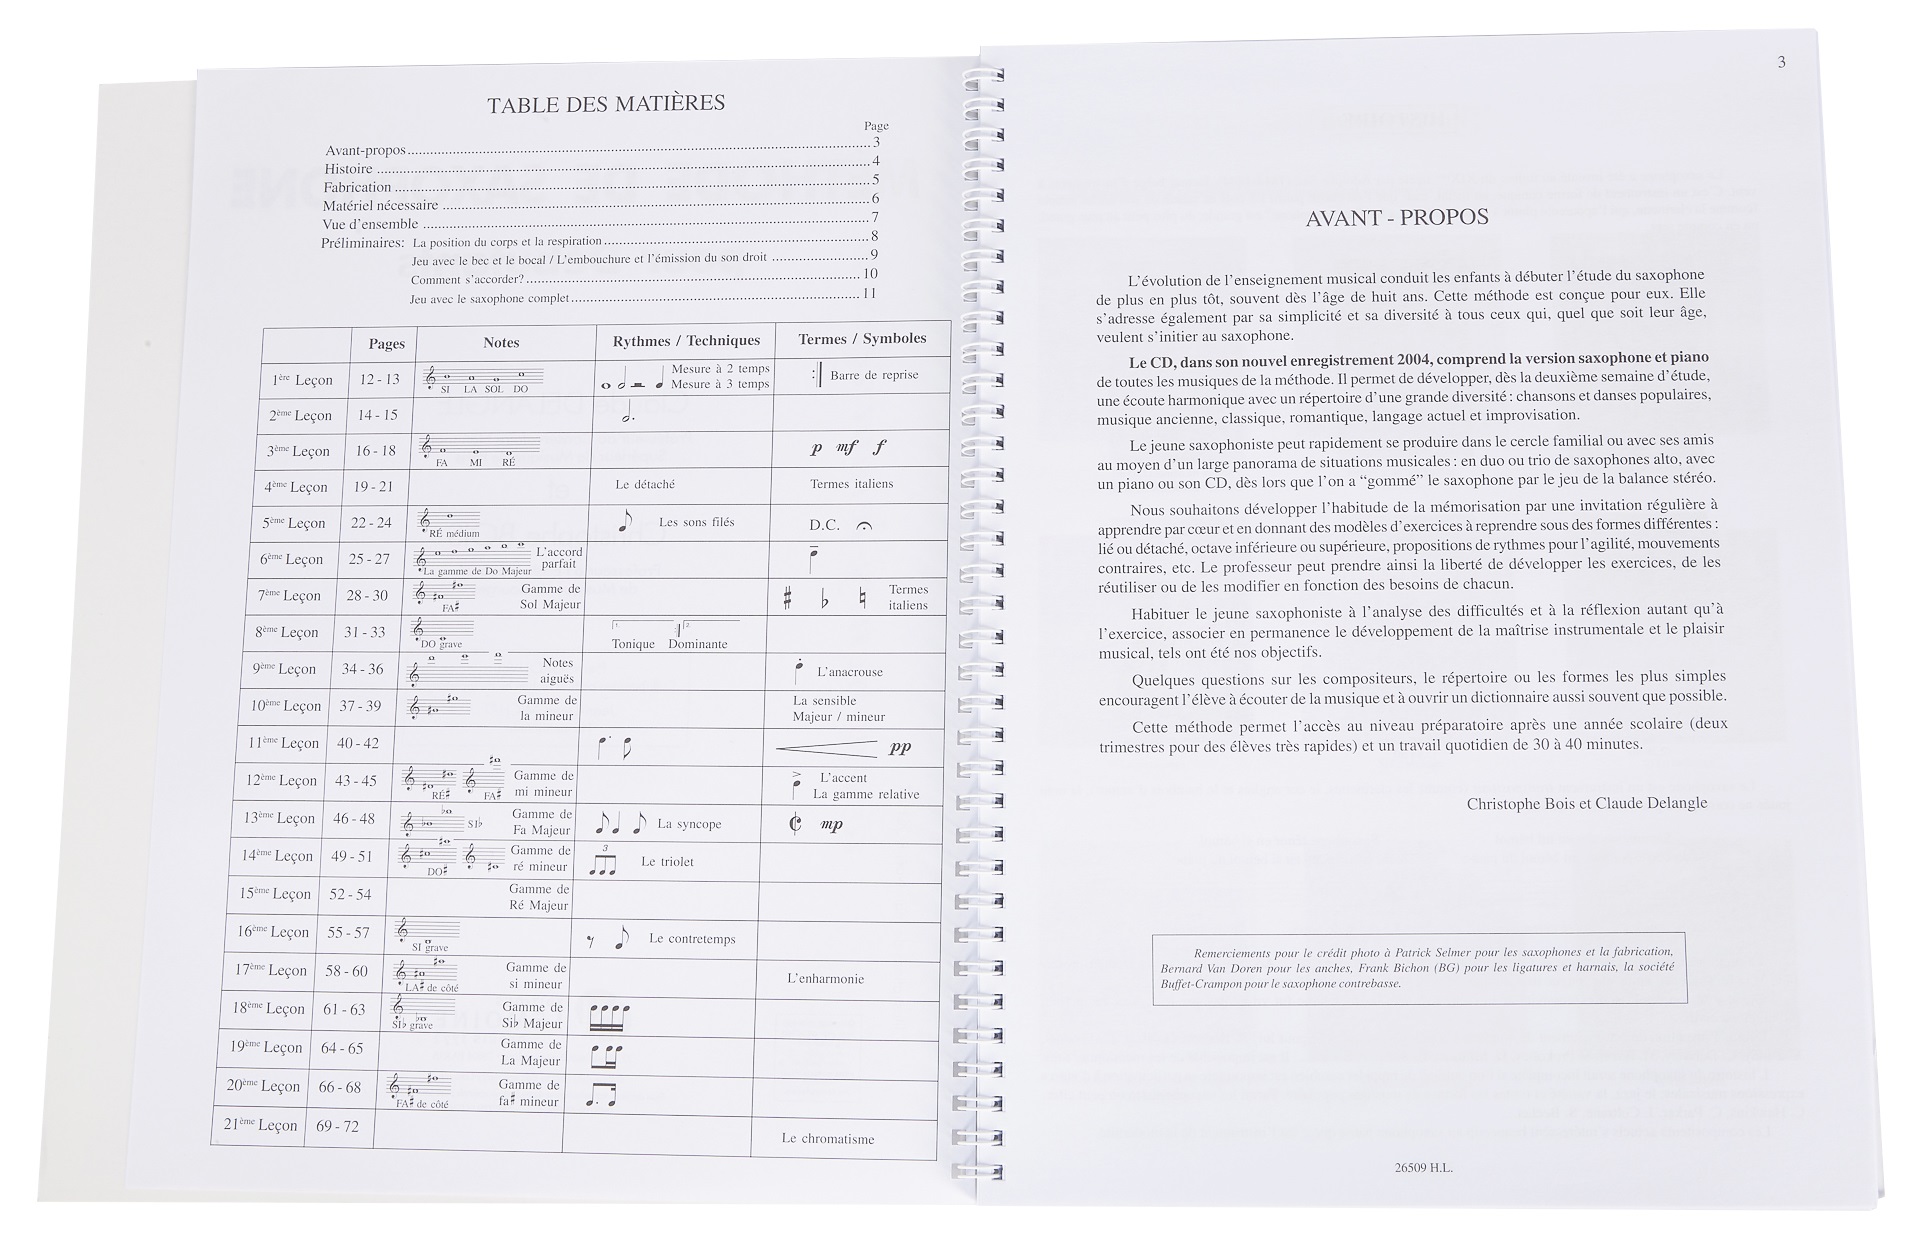 TABLE DES MATIÈRES
Page
Avant-propos 3
Histoire 4
Fabrication 5
Matériel nécessaire 6
Vue d'ensemble 7
Préliminaires: La position du corps et la respiration 8
Jeu avec le bec et le bocal / L'embouchure et l'émission du son droit 9
Comment s'accorder? 10
Jeu avec le saxophone complet 11
Pages Notes Rythmes / Techniques Termes / Symboles
1ère Leçon 12 - 13 SI LA SOL DO Mesure à 2 temps Mesure à 3 temps Barre de reprise
2ème Leçon 14 - 15
3ème Leçon 16 - 18 FA MI RÉ p mf f
4ème Leçon 19 - 21 Le détaché Termes italiens
5ème Leçon 22 - 24 RÉ médium Les sons filés D.C.
6ème Leçon 25 - 27 La gamme de Do Majeur L'accord parfait
7ème Leçon 28 - 30 FA♯ Gamme de Sol Majeur ♯ ♭ ♮ Termes italiens
8ème Leçon 31 - 33 DO grave 1. 2. Tonique Dominante
9ème Leçon 34 - 36 Notes aiguës L'anacrouse
10ème Leçon 37 - 39 Gamme de la mineur La sensible Majeur / mineur
11ème Leçon 40 - 42 pp
12ème Leçon 43 - 45 RÉ♯ FA♯ Gamme de mi mineur L'accent La gamme relative
13ème Leçon 46 - 48 SI♭ Gamme de Fa Majeur La syncope mp
14ème Leçon 49 - 51 DO♯ Gamme de ré mineur 3 Le triolet
15ème Leçon 52 - 54 Gamme de Ré Majeur
16ème Leçon 55 - 57 SI grave Le contretemps
17ème Leçon 58 - 60 LA♯ de côté Gamme de si mineur L'enharmonie
18ème Leçon 61 - 63 SI♭ grave Gamme de Si♭ Majeur
19ème Leçon 64 - 65 Gamme de La Majeur
20ème Leçon 66 - 68 FA♯ de côté Gamme de fa♯ mineur
21ème Leçon 69 - 72 Le chromatisme
3
AVANT - PROPOS
L'évolution de l'enseignement musical conduit les enfants à débuter l'étude du saxophone
de plus en plus tôt, souvent dès l'âge de huit ans. Cette méthode est conçue pour eux. Elle
s'adresse également par sa simplicité et sa diversité à tous ceux qui, quel que soit leur âge,
veulent s'initier au saxophone.
Le CD, dans son nouvel enregistrement 2004, comprend la version saxophone et piano
de toutes les musiques de la méthode. Il permet de développer, dès la deuxième semaine d'étude,
une écoute harmonique avec un répertoire d'une grande diversité : chansons et danses populaires,
musique ancienne, classique, romantique, langage actuel et improvisation.
Le jeune saxophoniste peut rapidement se produire dans le cercle familial ou avec ses amis
au moyen d'un large panorama de situations musicales : en duo ou trio de saxophones alto, avec
un piano ou son CD, dès lors que l'on a “gommé” le saxophone par le jeu de la balance stéréo.
Nous souhaitons développer l'habitude de la mémorisation par une invitation régulière à
apprendre par cœur et en donnant des modèles d'exercices à reprendre sous des formes différentes :
lié ou détaché, octave inférieure ou supérieure, propositions de rythmes pour l'agilité, mouvements
contraires, etc. Le professeur peut prendre ainsi la liberté de développer les exercices, de les
réutiliser ou de les modifier en fonction des besoins de chacun.
Habituer le jeune saxophoniste à l'analyse des difficultés et à la réflexion autant qu'à
l'exercice, associer en permanence le développement de la maîtrise instrumentale et le plaisir
musical, tels ont été nos objectifs.
Quelques questions sur les compositeurs, le répertoire ou les formes les plus simples
encouragent l'élève à écouter de la musique et à ouvrir un dictionnaire aussi souvent que possible.
Cette méthode permet l'accès au niveau préparatoire après une année scolaire (deux
trimestres pour des élèves très rapides) et un travail quotidien de 30 à 40 minutes.
Christophe Bois et Claude Delangle
Remerciements pour le crédit photo à Patrick Selmer pour les saxophones et la fabrication,
Bernard Van Doren pour les anches, Frank Bichon (BG) pour les ligatures et harnais, la société
Buffet-Crampon pour le saxophone contrebasse.
26509 H.L.